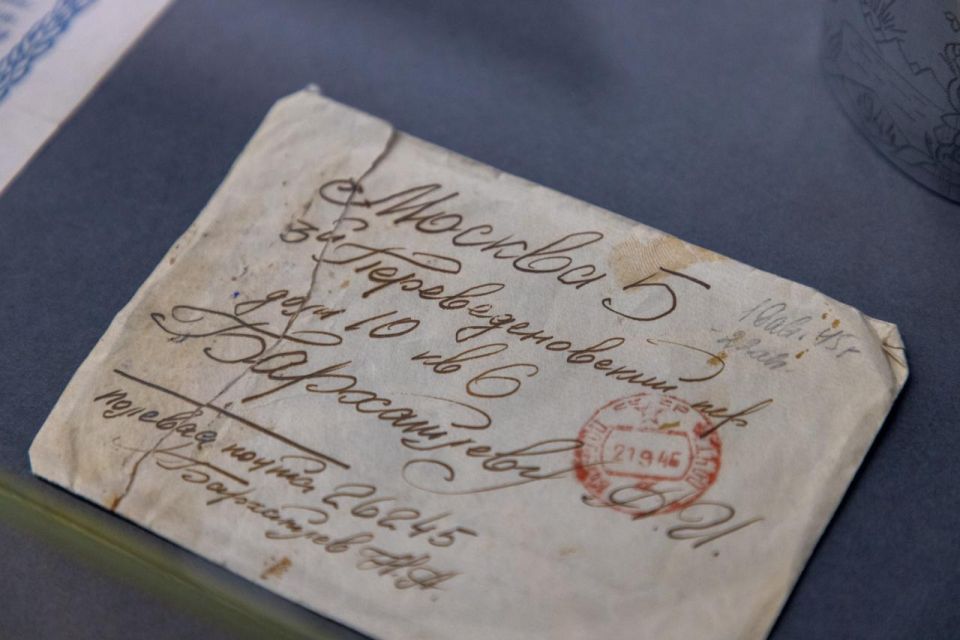 Москва 5
3й Переведеновский пер
дом 10 кв 6
Бархатцеву А. И.
полевая почта 26245
Бархатцев Н.А.
21 9 45